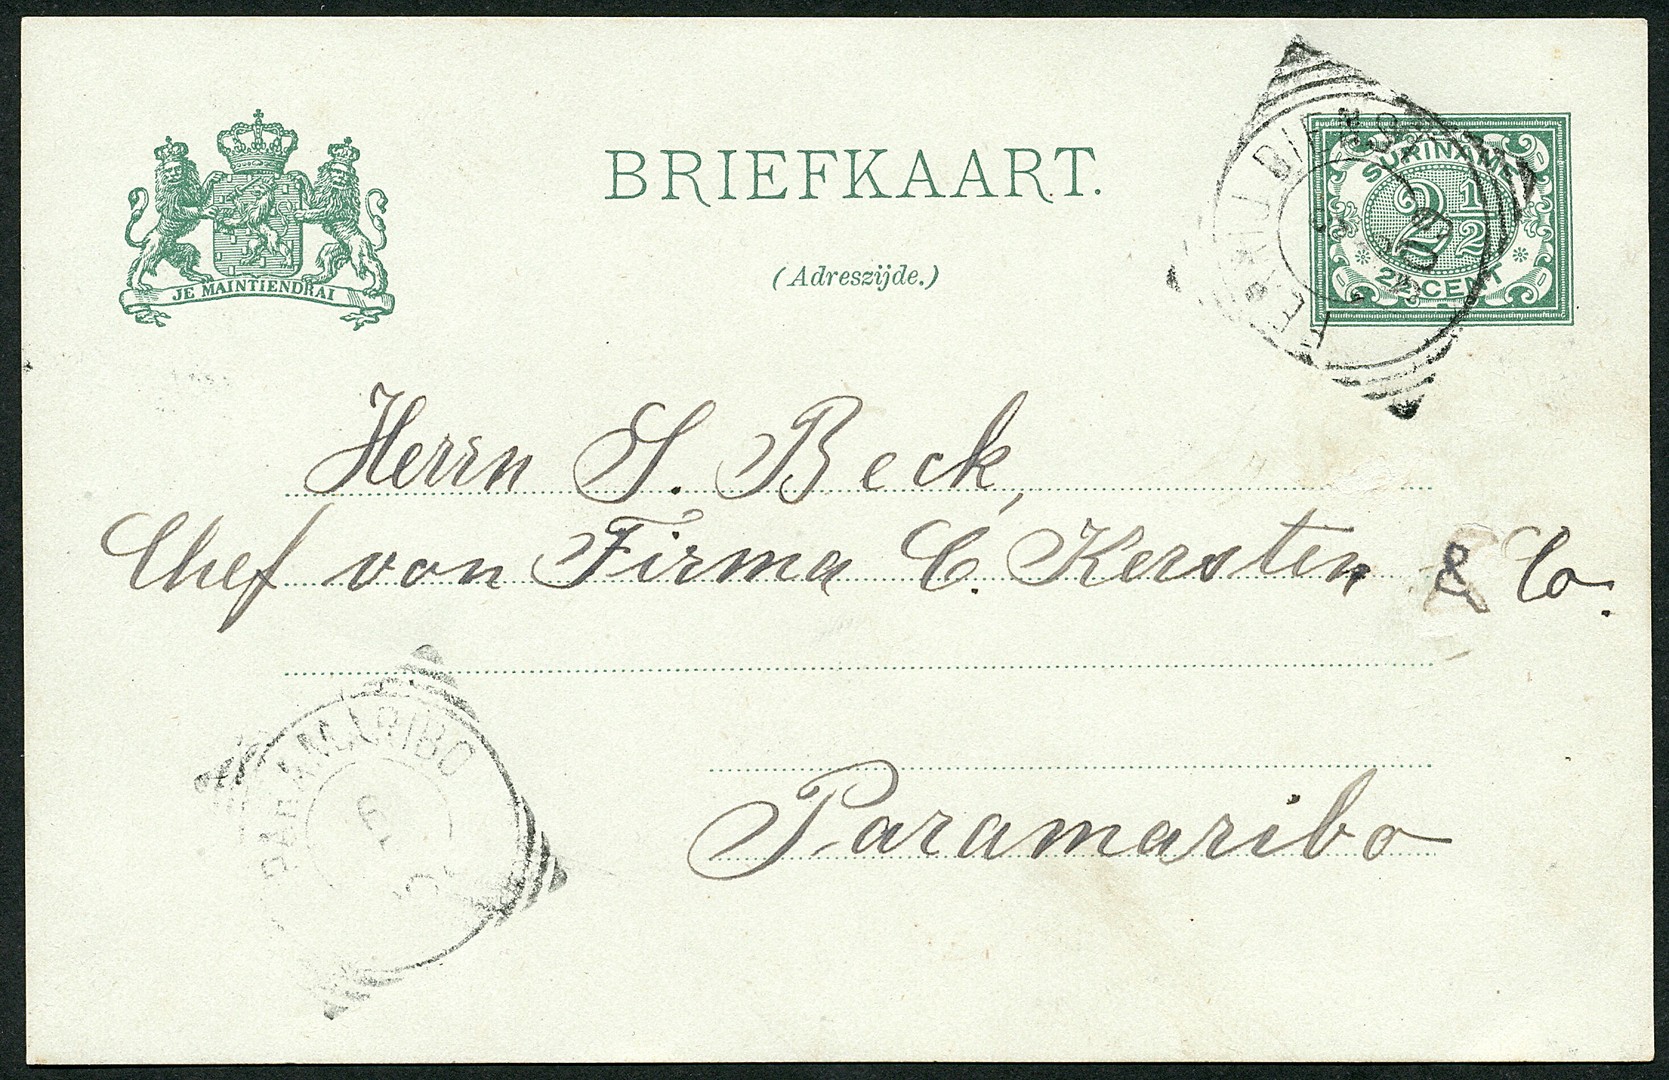 BRIEFKAART.
(Adreszijde.)
JE MAINTIENDRAI
SURINAME
2 1/2
2 1/2 CENT
Herrn S. Beck,
Chef von Firma C. Kersten & Co.
Paramaribo
PARAMARIBO